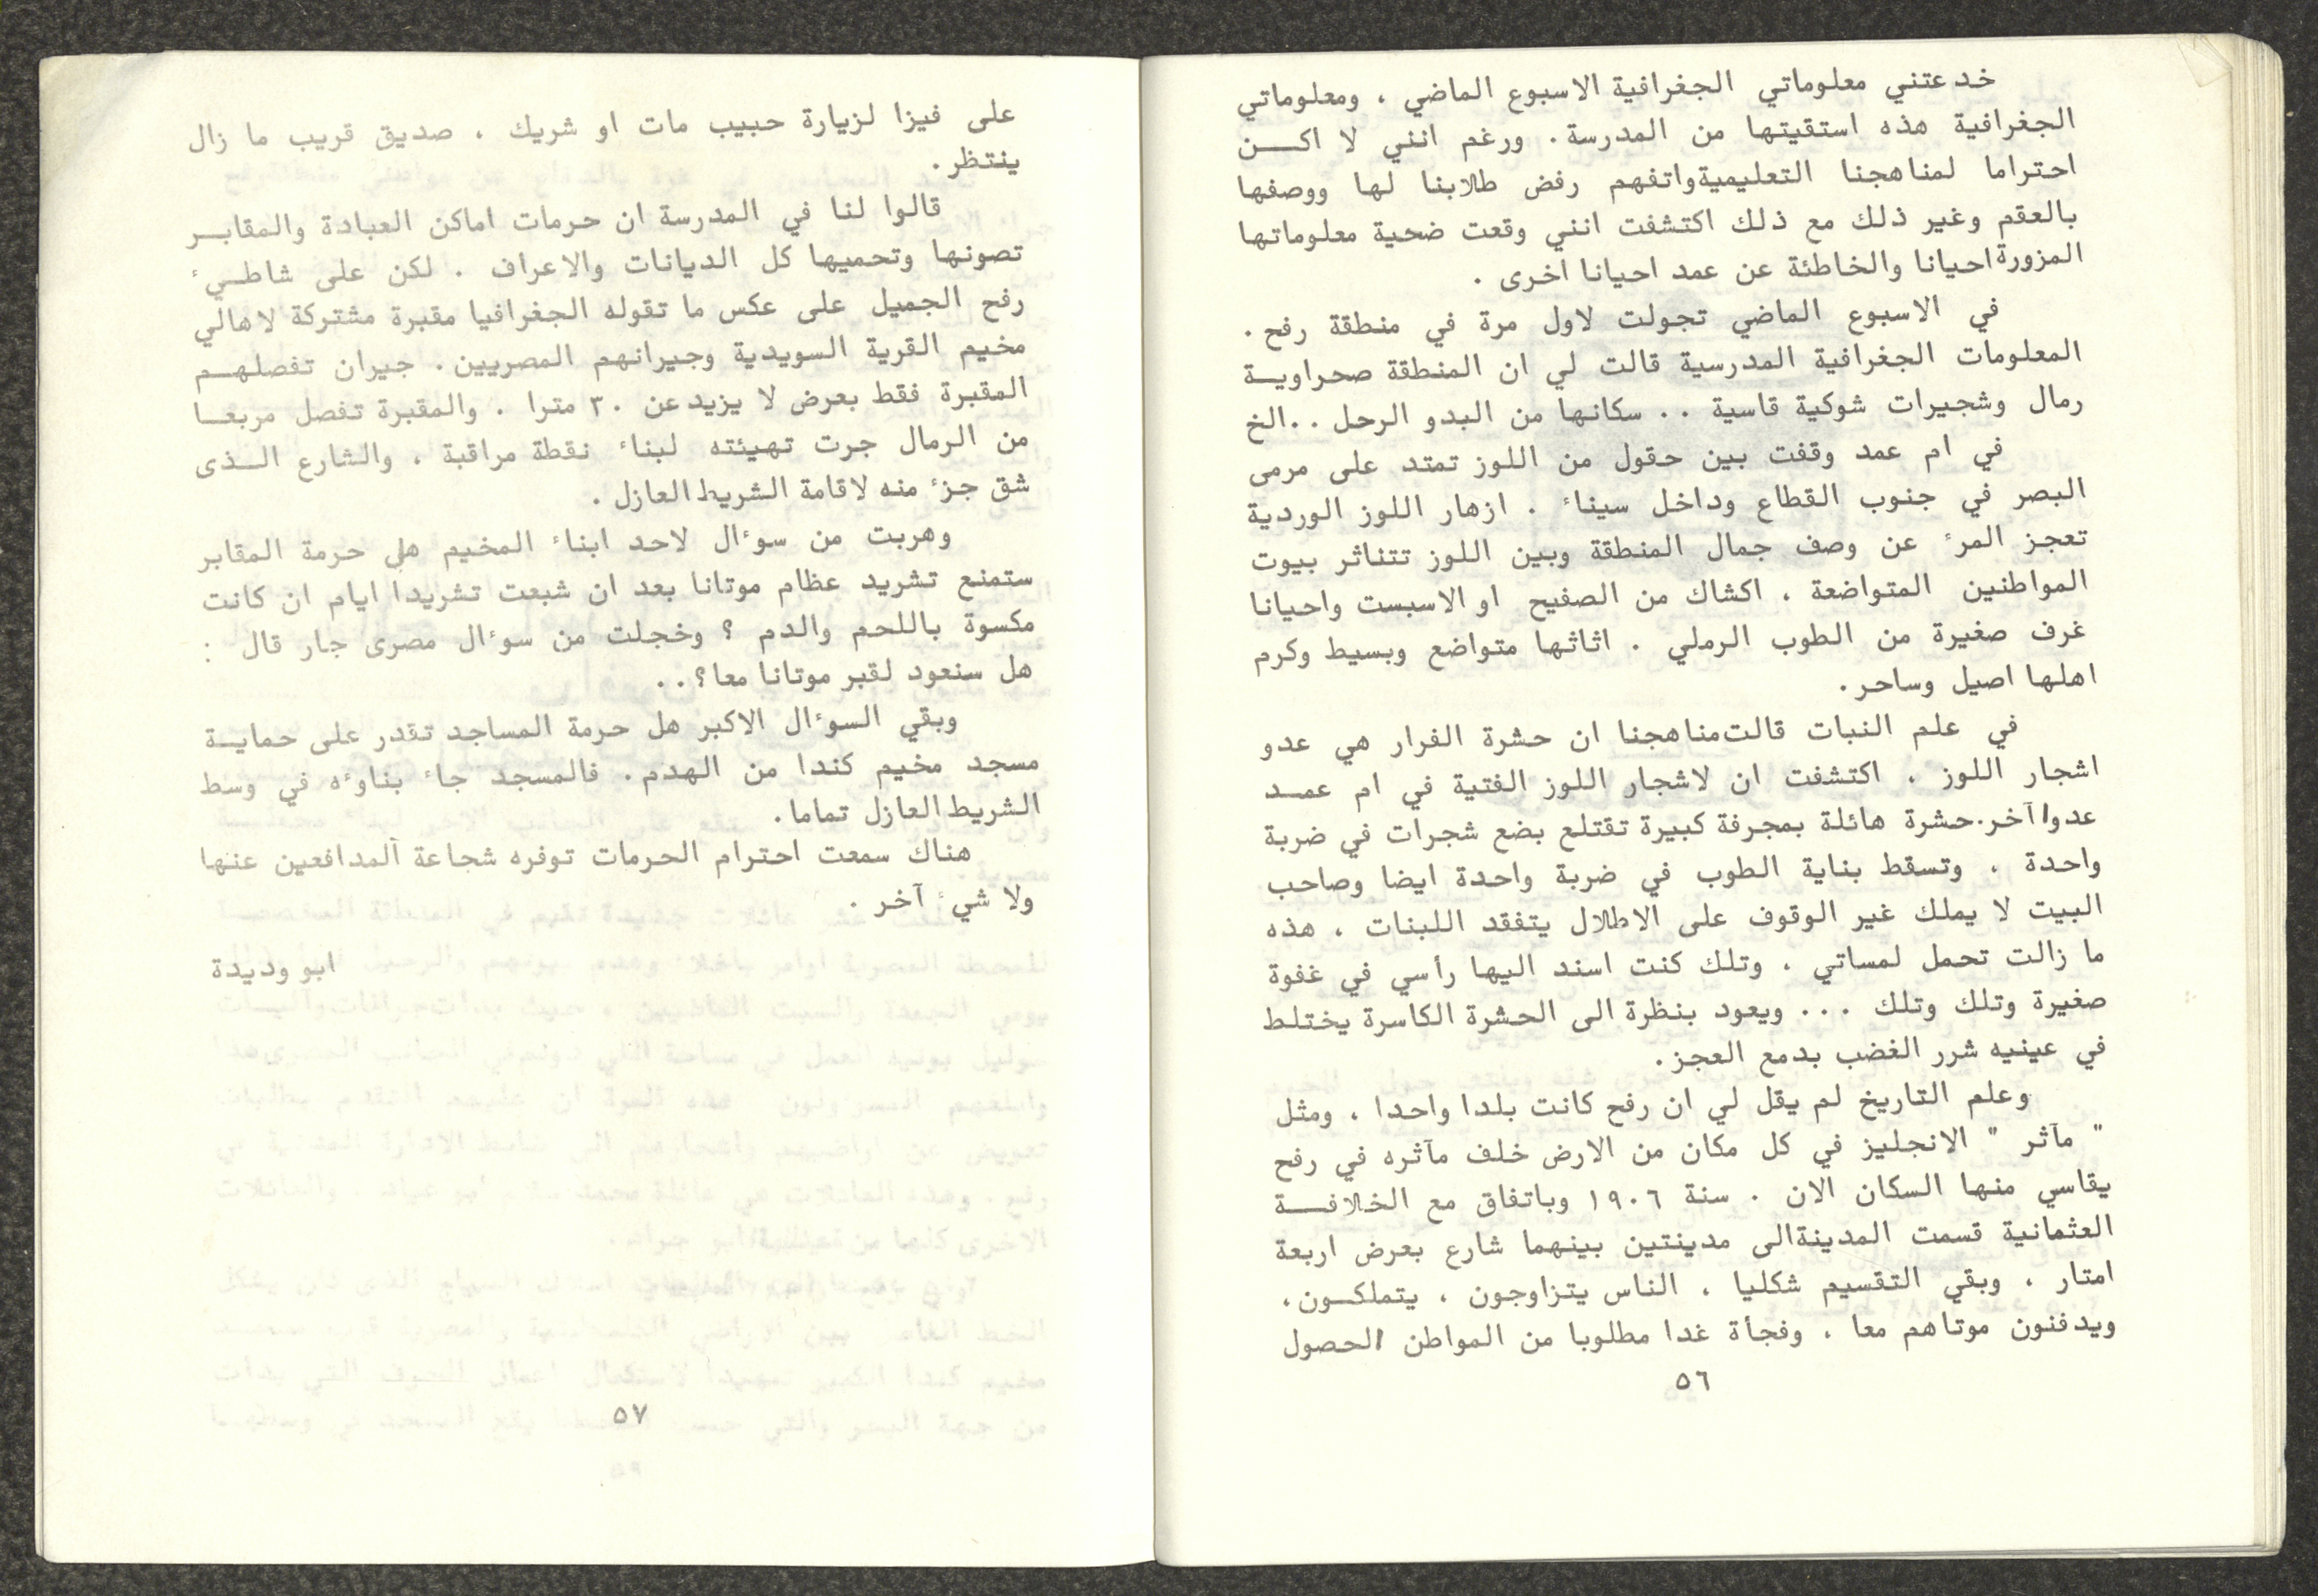 خدعتني معلوماتي الجغرافية الاسبوع الماضي ، ومعلوماتي
الجغرافية هذه استقيتها من المدرسة . ورغم انني لا اكـــن
احتراما لمناهجنا التعليمية واتفهم رفض طلابنا لها ووصفها
بالعقم وغير ذلك مع ذلك اكتشفت انني وقعت ضحية معلوماتها
المزورة احيانا والخاطئة عن عمد احيانا اخرى .
في الاسبوع الماضي تجولت لاول مرة في منطقة رفح .
المعلومات الجغرافية المدرسية قالت لي ان المنطقة صحراويــة
رمال وشجيرات شوكية قاسية . . سكانها من البدو الرحل . . الخ
في ام عمد وقفت بين حقول من اللوز تمتد على مرمى
البصر في جنوب القطاع وداخل سيناء . ازهار اللوز الوردية
تعجز المرء عن وصف جمال المنطقة وبين اللوز تتناثر بيوت
المواطنين المتواضعة ، اكشاك من الصفيح او الاسبست واحيانا
غرف صغيرة من الطوب الرملي . اثاثها متواضع وبسيط وكرم
اهلها اصيل وساحر .
في علم النبات قالت مناهجنا ان حشرة الفرار هي عدو
اشجار اللوز . اكتشفت ان لاشجار اللوز الفتية في ام عمــد
عدوا آخر . حشرة هائلة بمجرفة كبيرة تقتلع بضع شجرات في ضربة
واحدة ، وتسقط بناية الطوب في ضربة واحدة ايضا وصاحب
البيت لا يملك غير الوقوف على الاطلال يتفقد اللبنات ، هذه
ما زالت تحمل لمساتي ، وتلك كنت اسند اليها رأسي في غفوة
صغيرة وتلك وتلك . . . ويعود بنظرة الى الحشرة الكاسرة يختلط
في عينيه شرر الغضب بدمع العجز .
وعلم التاريخ لم يقل لي ان رفح كانت بلدا واحدا ، ومثل
" مآثر " الانجليز في كل مكان من الارض خلف مآثره في رفح
يقاسي منها السكان الان . سنة ١٩٠٦ وباتفاق مع الخلافـــة
العثمانية قسمت المدينة الى مدينتين بينهما شارع بعرض اربعة
امتار ، وبقي التقسيم شكليا ، الناس يتزاوجون ، يتملكــون ،
ويدفنون موتاهم معا ، وفجأة غدا مطلوبا من المواطن الحصول
٥٦
على فيزا لزيارة حبيب مات او شريك ، صديق قريب ما زال
ينتظر .
قالوا لنا في المدرسة ان حرمات اماكن العبادة والمقابــر
تصونها وتحميها كل الديانات والاعراف . لكن على شاطــيء
رفح الجميل على عكس ما تقوله الجغرافيا مقبرة مشتركة لاهالي
مخيم القرية السويدية وجيرانهم المصريين . جيران تفصلهــم
المقبرة فقط بعرض لا يزيد عن ٣٠ مترا . والمقبرة تفصل مربعــا
من الرمال جرت تهيئته لبناء نقطة مراقبة ، والشارع الــذى
شق جزء منه لاقامة الشريط العازل .
وهربت من سوءال لاحد ابناء المخيم هل حرمة المقابر
ستمنع تشريد عظام موتانا بعد ان شبعت تشريدا ايام ان كانت
مكسوة باللحم والدم ؟ وخجلت من سوءال مصرى جار قال :
هل سنعود لقبر موتانا معا ؟ . .
وبقي السوءال الاكبر هل حرمة المساجد تقدر على حمايــة
مسجد مخيم كندا من الهدم . فالمسجد جاء بناوءه في وسط
الشريط العازل تماما .
هناك سمعت احترام الحرمات توفره شجاعة المدافعين عنها
ولا شيء آخر .
ابو وديدة
٥٧